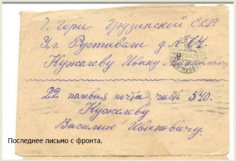 г. Гори Грузинской ССР
Ул. Руставели д. № 64
Нужелову Ивану
22 полевая почта часть 540.
Нужелову
Василию Ивановичу.
Последнее письмо с фронта.